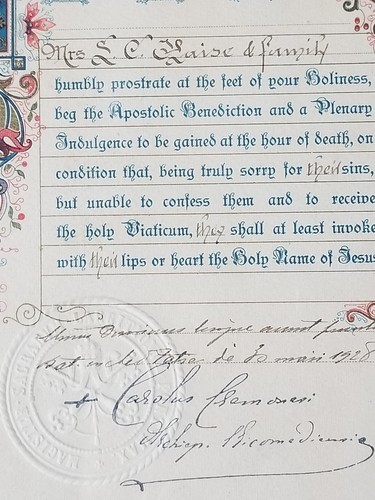 Mrs L. C. Haise & family
humbly prostrate at the feet of your Holiness,
beg the Apostolic Benediction and a Plenary
Indulgence to be gained at the hour of death, on
condition that, being truly sorry for their sins,
but unable to confess them and to receive
the holy Viaticum, they shall at least invoke
with their lips or heart the Holy Name of Jesus
die 30 maii 1928
+ Carolus Cremonesi
Archiep. Nicomediensis